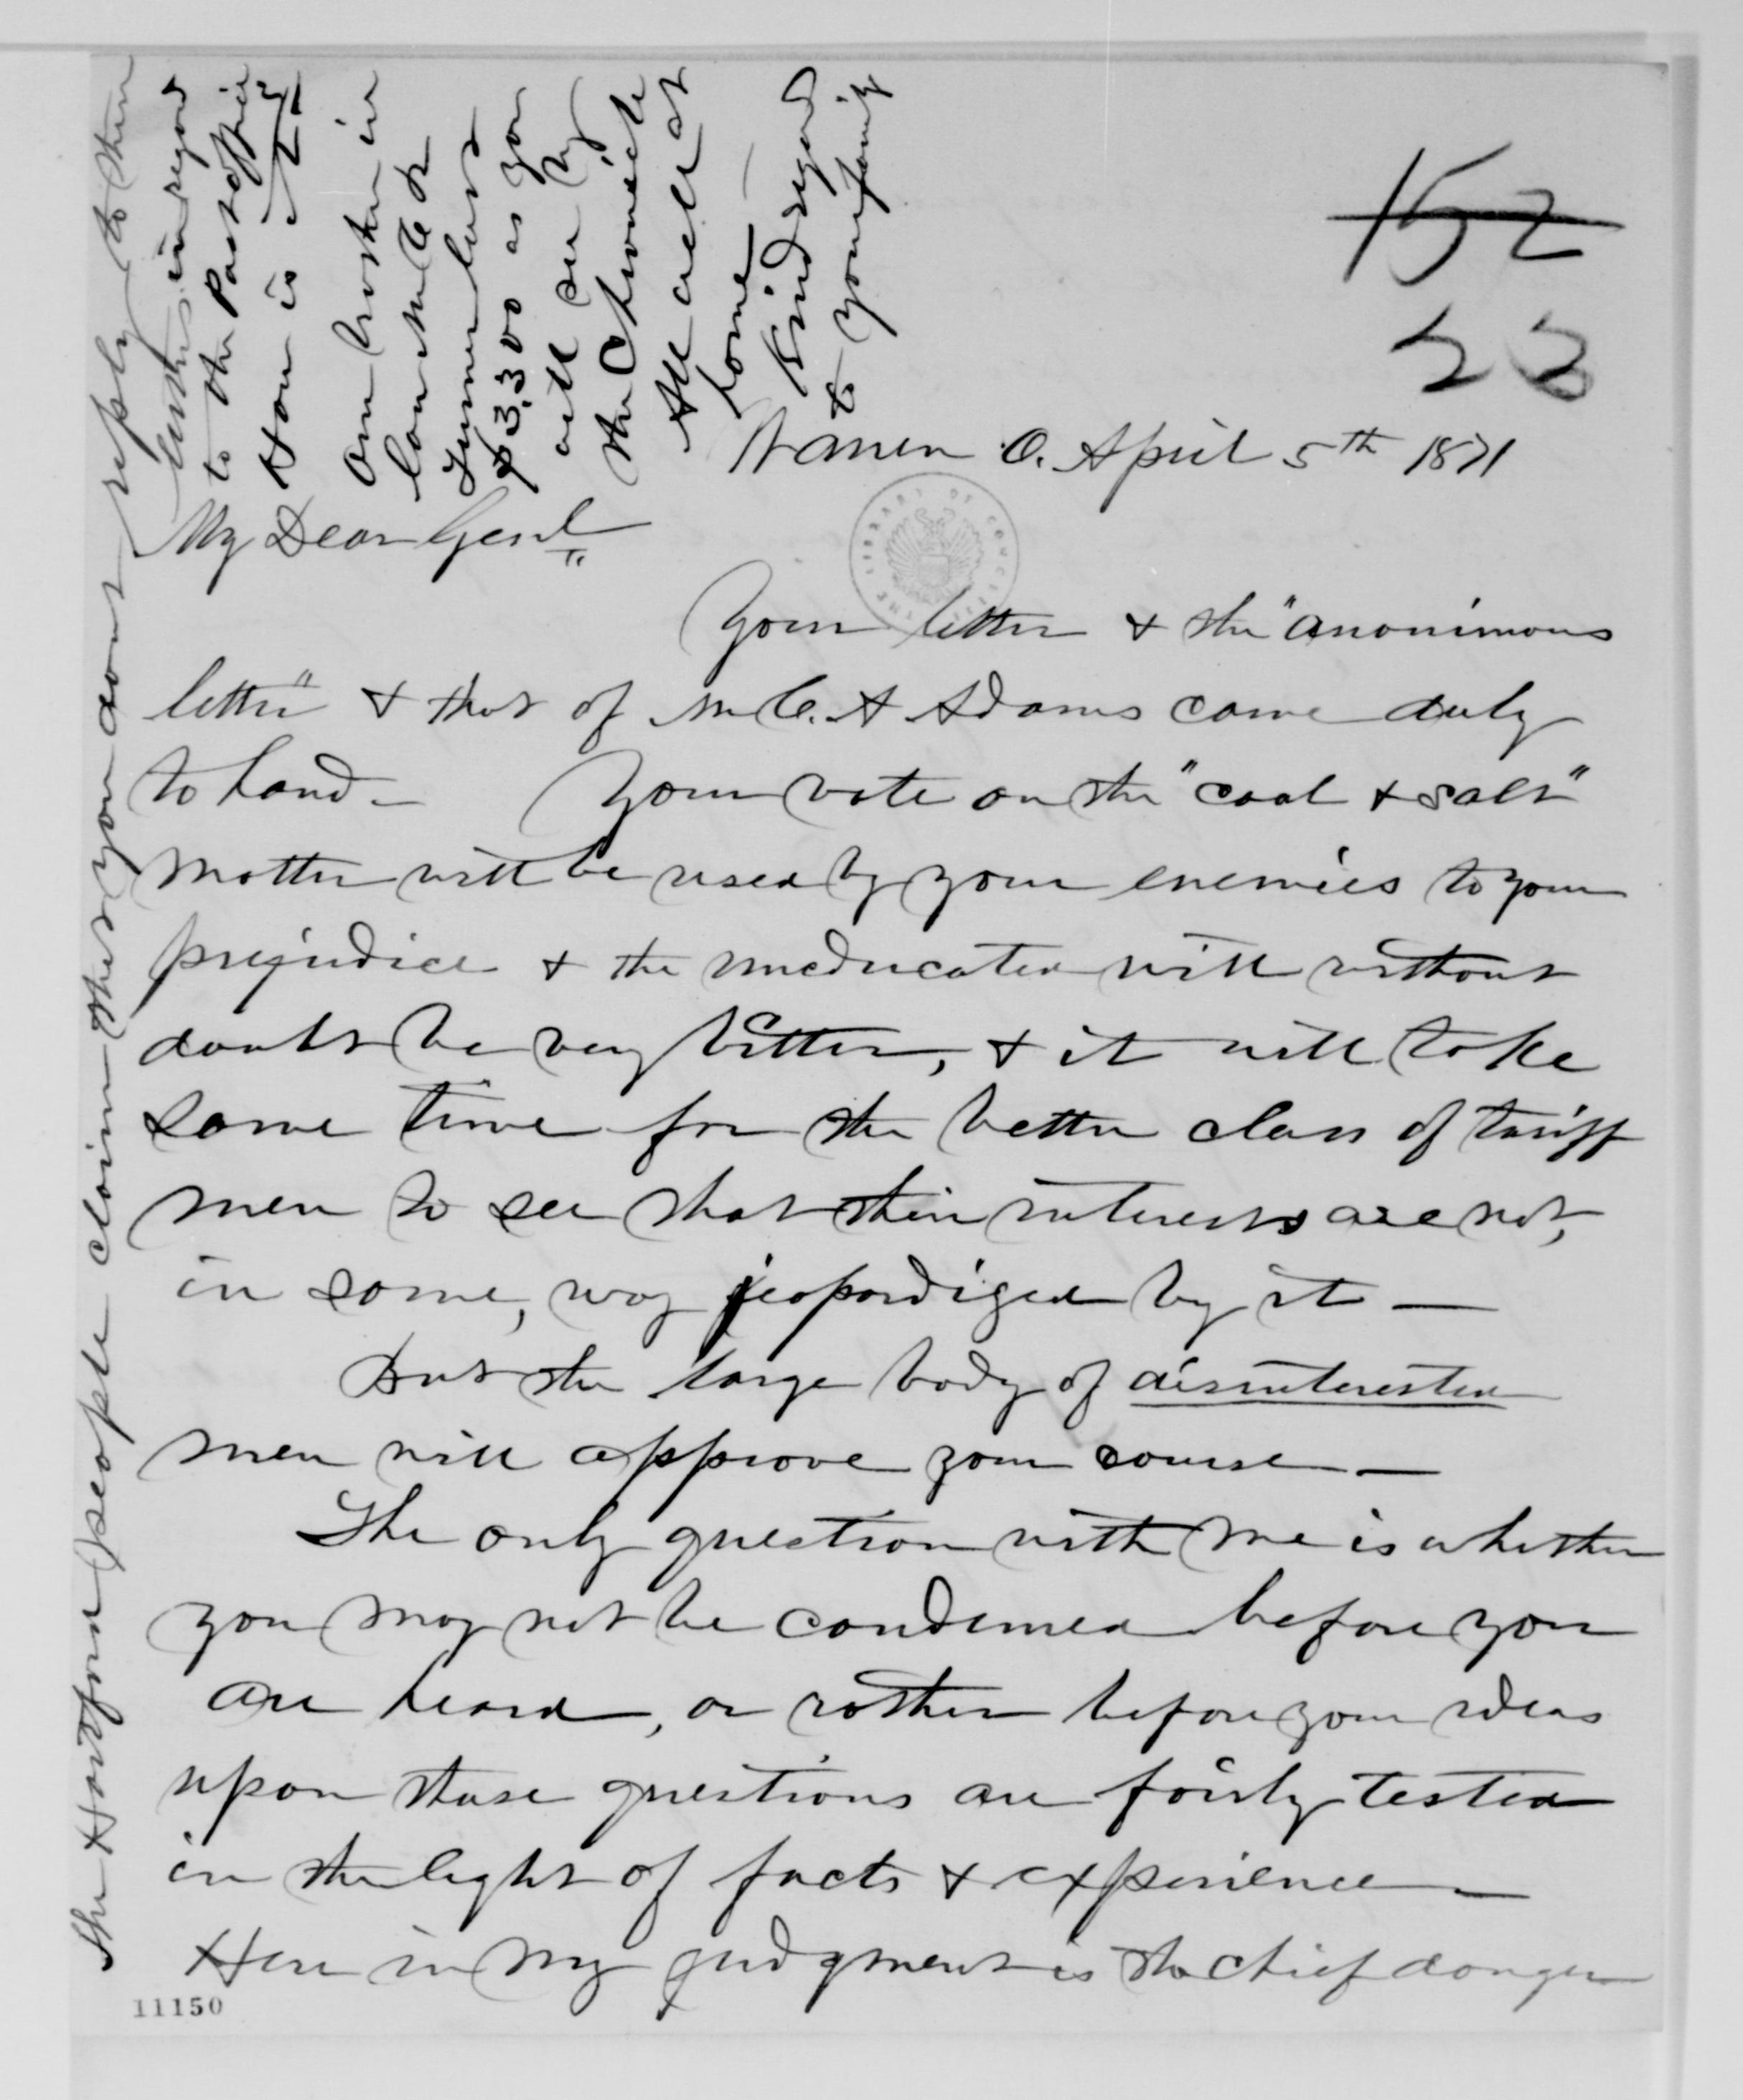 152
23
Warren O. April 5th 1871
My Dear Genl
Your letter & the "anonimous
letter" & that of Mr C. A Adams came duly
to hand – Your vote on the "coal & salt"
matter will be used by your enemies to your
prejudice & the uneducated will without
doubt be very bitter, & it will take
some time for the better class of tariff
men to see that their interests are not,
in some, way jeopardized by it —
But the large body of disinterested
men will approve your course —
The only question with me is whether
you may not be condemed before you
are heard, or rather before your ideas
upon these questions are fairly tested
in the light of facts & experience —
Here in my judgment is the chief danger
11150
The Hartford people claim that you dont reply to their
letters in regard
to the Post office
How is it?
Our brother in
law Mr
lost
$3,300 as you
will see by
the Chronicle
All well at
home —
Kind regard
to your family
THE LIBRARY OF CONGRESS